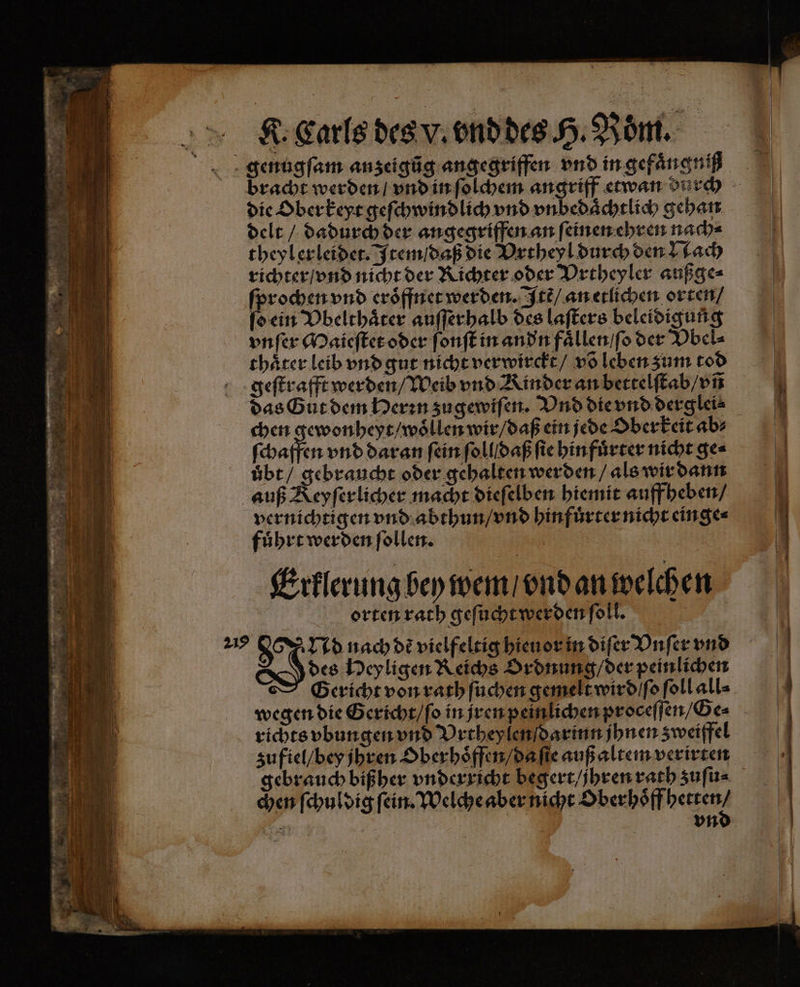 K. Carls des v. vnd des H. Röm.
genugſam anzeigũg angegriffen vnd in gefaͤngniß
bracht werden / vnd in ſolchem angriff etwan durch
die Oberkeyt geſchwindlich vnd vnbedaͤchtlich gehan
delt / dadurch der angegriffen an ſeinen ehren nach⸗
theyl erleidet. Item/daß die Vrtheyl durch den Nach
richter/vnd nicht der Richter oder Vrtheyler außge⸗
ſprochen vnd eroͤffnet werden. Itẽ/ an etlichen orten/
ſo ein Vbelthaͤter auſſerhalb des laſters beleidigung̃
vnſer Maieſtet oder ſonſt in andn̄ faͤllen/ſo der Vbel⸗
thaͤter leib vnd gut nicht verwirckt/ võ leben zum tod
geſtrafft werden/Weib vnd Kinder an bettelſtab/vñ
das Gut dem Herꝛn zugewiſen. Vnd die vnd derglei⸗
chen gewonheyt/woͤllen wir/daß ein jede Oberkeit ab⸗
ſchaffen vnd daran ſein ſoll/daß ſie hinfuͤrter nicht ge⸗
uͤbt / gebraucht oder gehalten werden / als wir dann
auß Keyſerlicher macht dieſelben hiemit auffheben/
vernichtigen vnd abthun/vnd hinfuͤrter nicht einge⸗
fuͤhrt werden ſollen.
Erklerung bey wem / vnd an welchen
orten rath geſucht werden ſoll.
219 VNd nach dẽ vielfeltig hieuor in diſer Vnſer vnd
des Heyligen Reichs Ordnung/der peinlichen
Gericht von rath ſuchen gemelt wird/ſo ſoll all⸗
wegen die Gericht/ſo in jren peinlichen proceſſen/Ge⸗
richts vbungen vnd Vrtheylen/darinn jhnen zweiffel
zufiel/bey jhren Oberhoͤffen/da ſie auß altem verirten
gebrauch bißher vnderricht begert/jhren rath zuſu⸗
chen ſchuldig ſein. Welche aber nicht Oberhoͤff hetten/
vnd